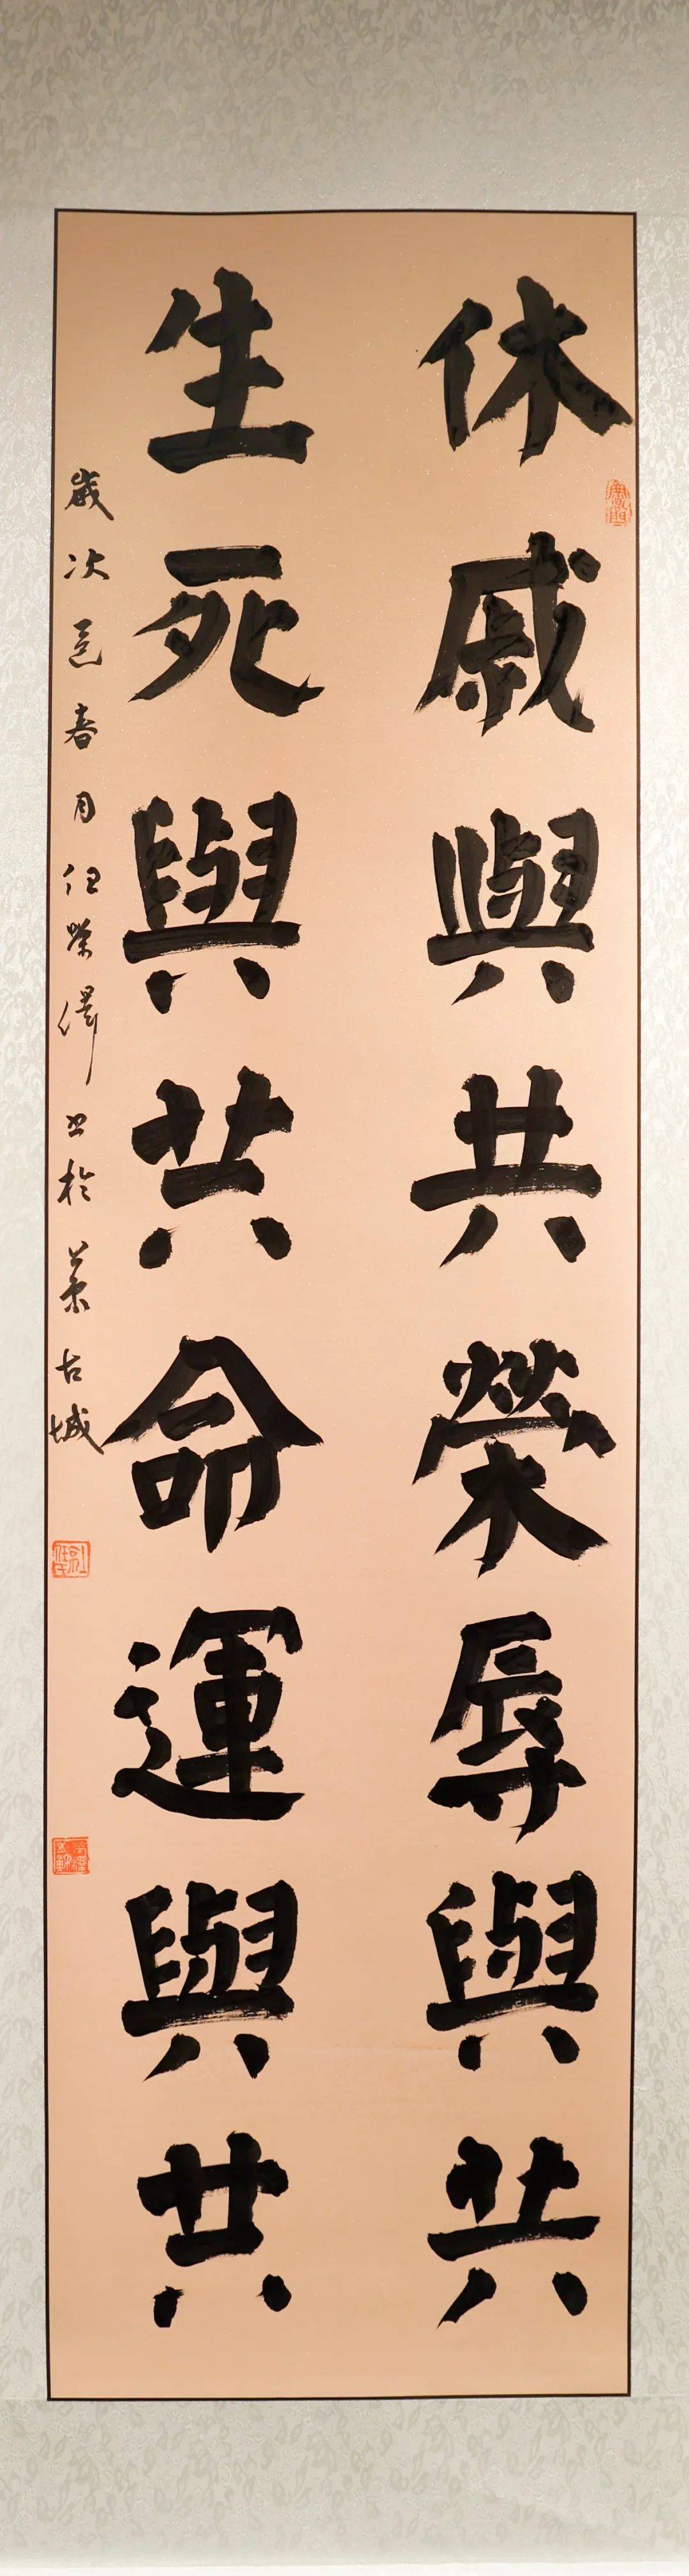 休戚與共榮辱與共
生死與共命運與共
歲次 春月任榮 書於蕭古城